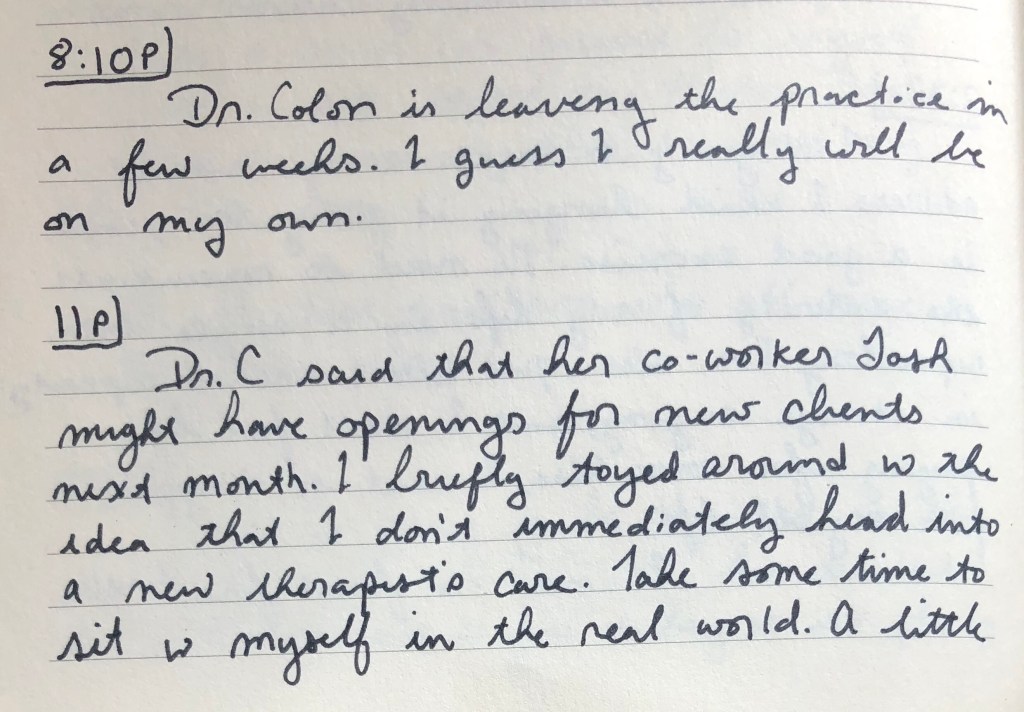 8:10P
Dr. Colon is leaving the practice in
a few weeks. I guess I really will be
on my own.
11P
Dr. C said that her co-worker Josh
might have openings for new clients
next month. I briefly toyed around w the
idea that I don't immediately head into
a new therapist's care. Take some time to
sit w myself in the real world. A little